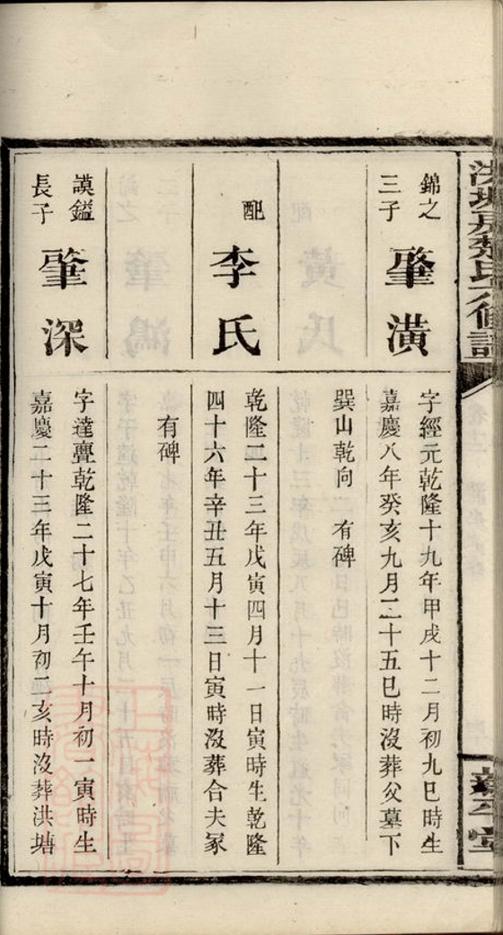 錦之
三子
肇潢
字經元乾隆十九年甲戌十二月初九巳時生
嘉慶八年癸亥九月二十五巳時沒葬父墓下
巽山乾向 有碑
配
李氏
乾隆二十三年戊寅四月十一日寅時生乾隆
四十六年辛丑五月十三日寅時沒葬合夫冢
有碑
謨鎰
長子
肇深
字達亹乾隆二十七年壬午十月初一寅時生
嘉慶二十三年戊寅十月初二亥時沒葬洪塘